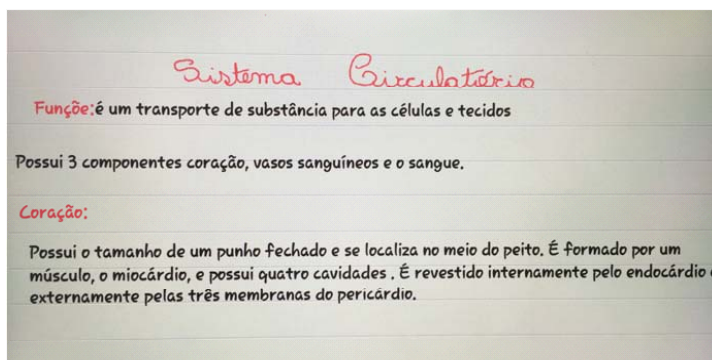 Sistema Circulatório
Funçõe:é um transporte de substância para as células e tecidos
Possui 3 componentes coração, vasos sanguíneos e o sangue.
Coração:
Possui o tamanho de um punho fechado e se localiza no meio do peito. É formado por um
músculo, o miocárdio, e possui quatro cavidades . É revestido internamente pelo endocárdio e
externamente pelas três membranas do pericárdio.